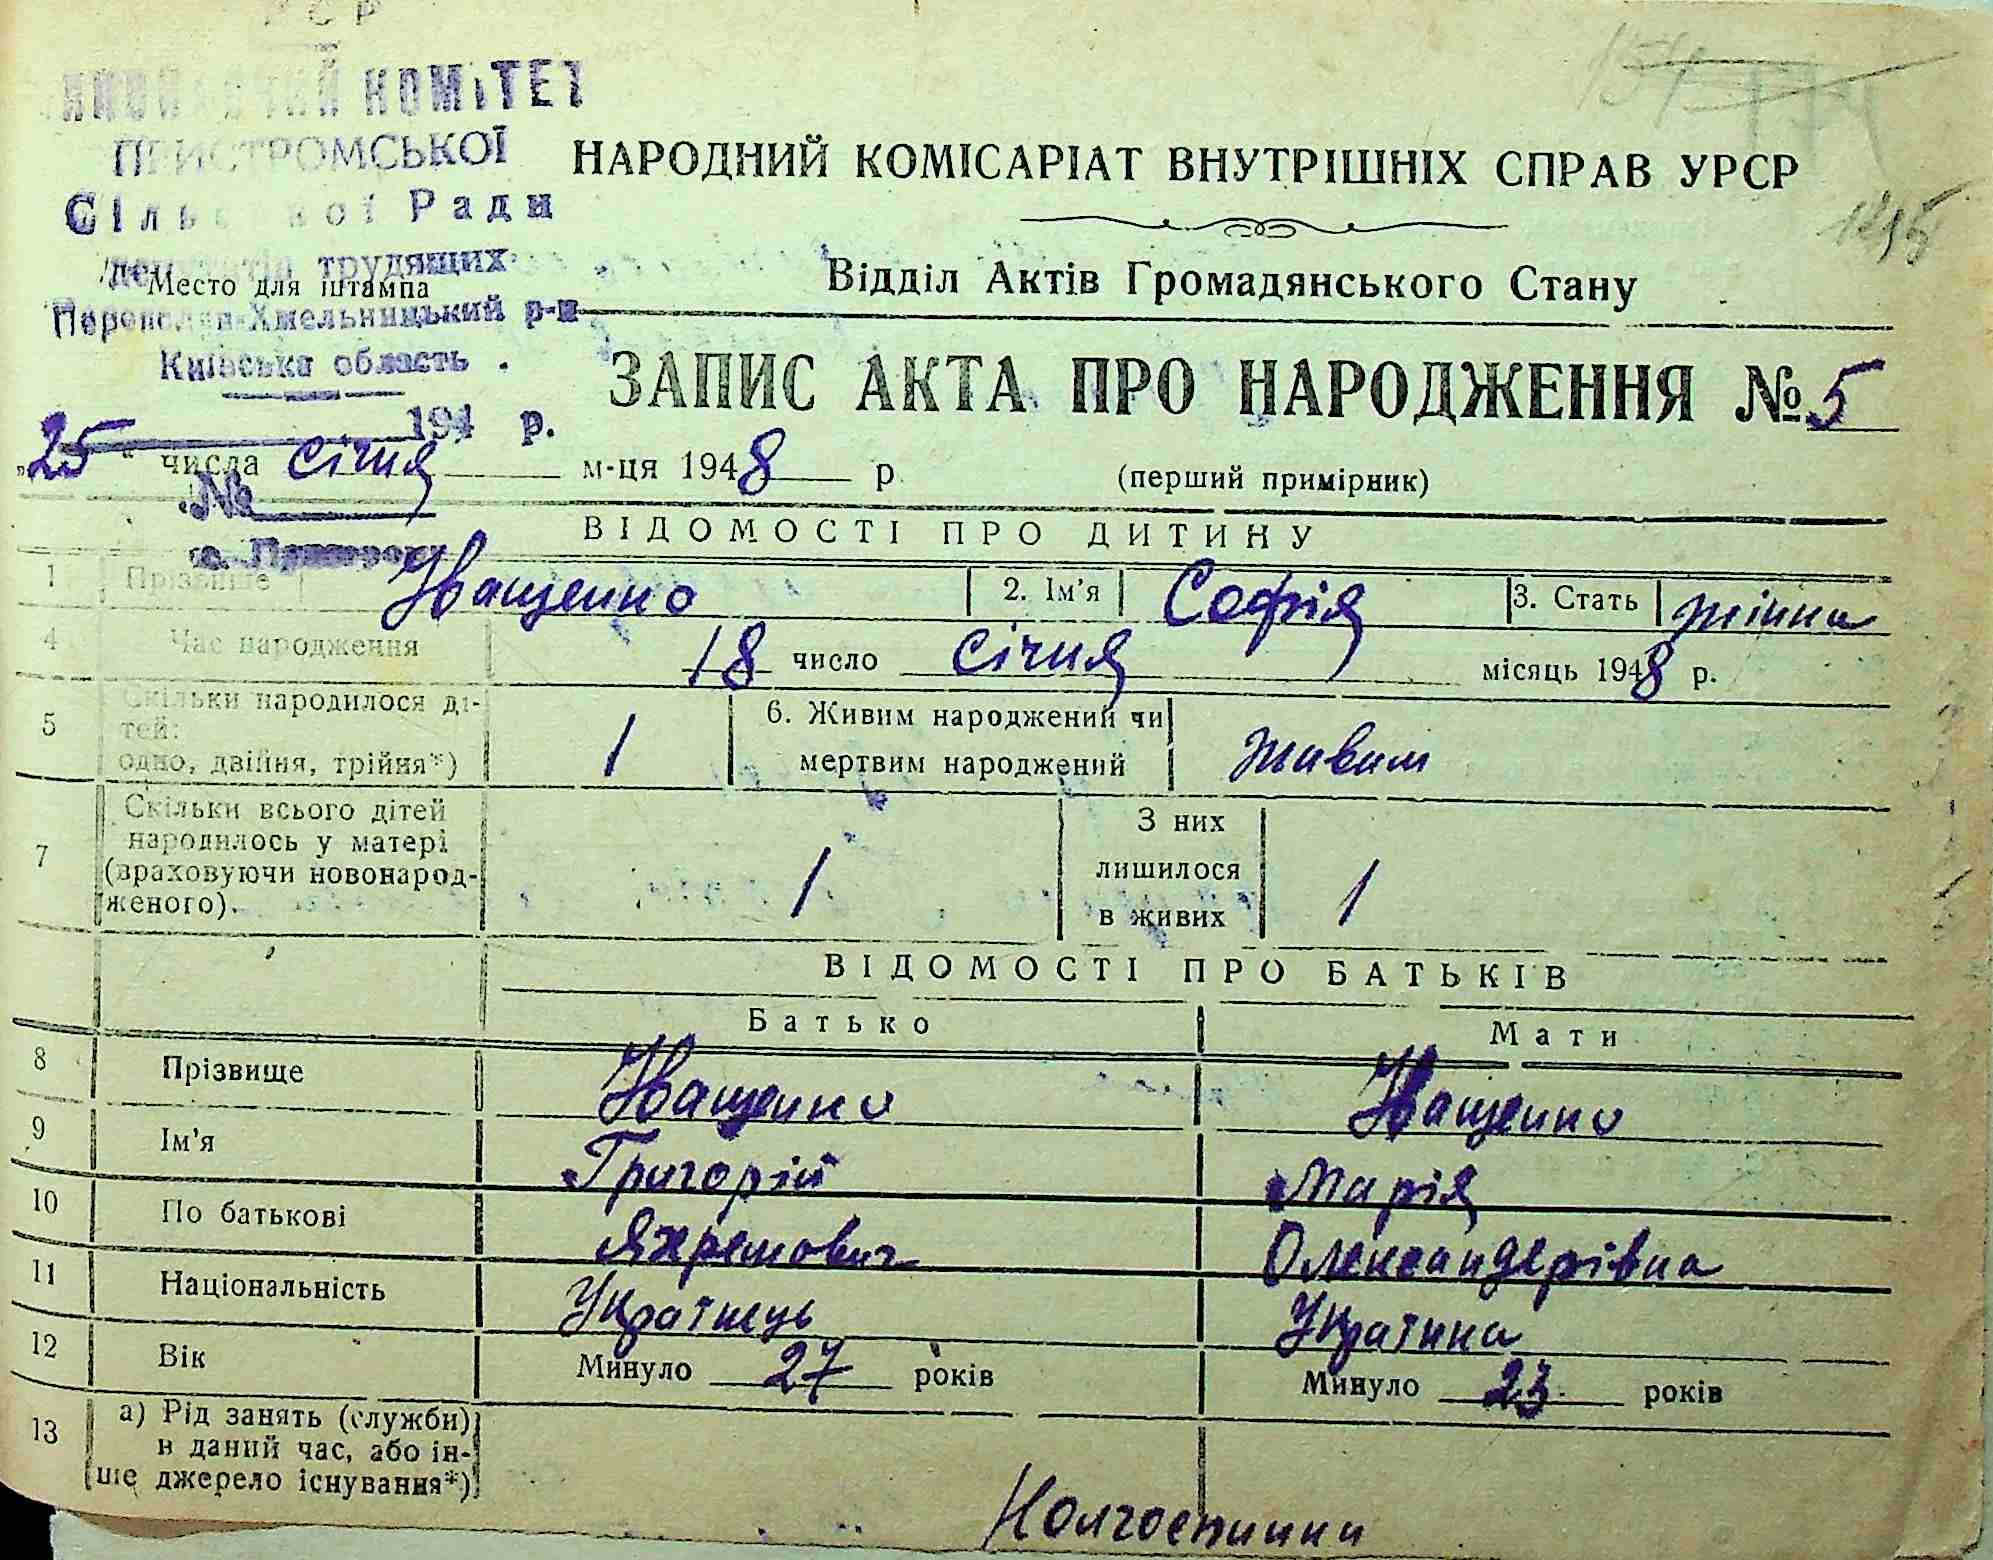 УРСР
ВИКОНАВЧИЙ КОМІТЕТ
ПРИСТРОМСЬКОЇ
Сільської Ради
депутатів трудящих
Переяслав-Хмельницький р-н
Київська область
194 р.
№
НАРОДНИЙ КОМІСАРІАТ ВНУТРІШНІХ СПРАВ УРСР
Відділ Актів Громадянського Стану
Место для штампа
ЗАПИС АКТА ПРО НАРОДЖЕННЯ № 5
„25“ числа січня м-ця 1948 р (перший примірник)
ВІДОМОСТІ ПРО ДИТИНУ
1 Прізвище Іващенко 2. Ім'я Софія 3. Стать жіння
4 Час народження 18 число січня місяць 1948 р.
5 Скільки народилося ді-
тей:
одно, двійня, трійня*) 1
6. Живим народжений чи
мертвим народжений живим
7 Скільки всього дітей
народилось у матері
(враховуючи новонарод-
женого). 1
З них
лишилося
в живих 1
ВІДОМОСТІ ПРО БАТЬКІВ
Батько Мати
8 Прізвище Іващенко Іващенко
9 Ім'я Григорій Марія
10 По батькові Яхремович Олександерівна
11 Національність Українець Українка
12 Вік Минуло 27 років Минуло 23 років
13 а) Рід занять (служби)
в даний час, або ін-
ше джерело існування*)
Колгоспники